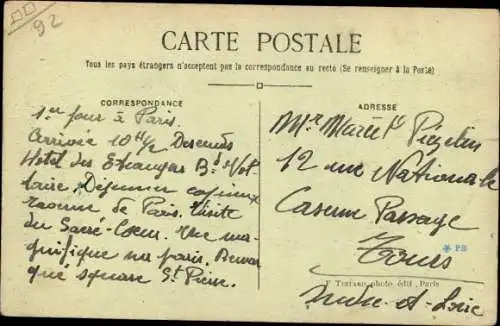 92
CARTE POSTALE
Tous les pays étrangers n'acceptent pas la correspondance au recto (Se renseigner à la Poste)
CORRESPONDANCE
1er jour à Paris.
Arrivée 10 h 1/2 Descendus
Hotel des Etrangers Bd Vol-
taire. Déjeuner copieux
de Paris. Visite
du Sacré-Coeur. Vue ma-
gnifique sur Paris.
qué square St Pierre.
ADRESSE
Mr
12 rue Nationale
Caserne Passage
Tours
Indre-et-Loire
* PB
photo. édit., Paris